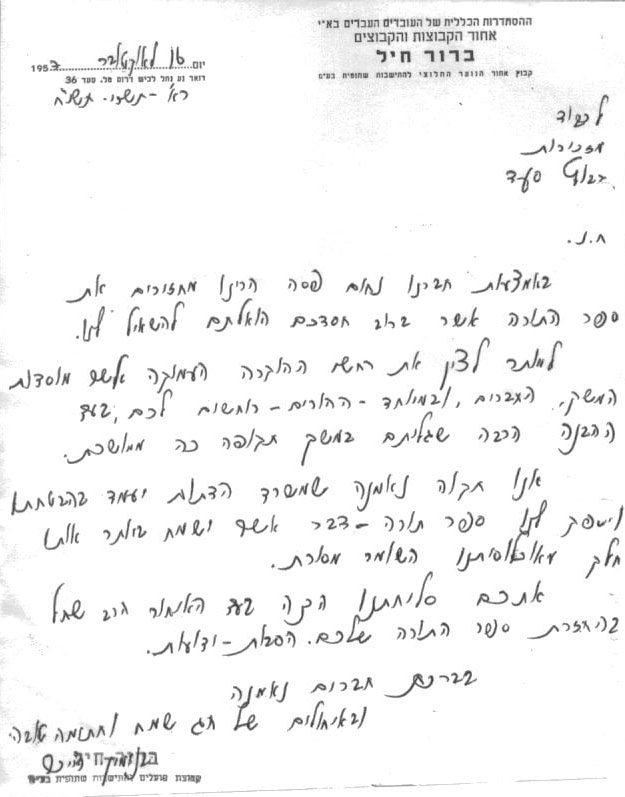 ההסתדרות הכללית של העובדים העברים בא״י
אחוד הקבוצות והקבוצים
ברור חיל
קבוץ אחוד הנוער החלוצי להתישבות שתופית בע״מ
יום 16 לאוקטובר 1957
דואר נע נחל לכיש דרום טל. סעד 36
כ״א - תשרי. תשי״ח
לכבוד
מזכירות
קבוץ סעד
ח.נ.
באמצעות חברנו נחום פסה הרינו מחזירים את
ספר התורה אשר ברוב חסדכם הואלתם להשאיל לנו.
למותר לציין את רחשי ההוקרה העמוקה אשר מוסדות
המשק, החברים, ובמיוחד - ההורים - רוחשים לכם, בעד
ההבנה הרבה שגליתם במשך תקופה כה ממושכת.
אנו תקוה נאמנה שמשרד הדתות יעמוד בהבטחתו
ויספק לנו ספר תורה - דבר אשר ישמח ביותר אותו
חלק מאוכלוסיתנו השומר מסורת.
אתכם סליחתנו הכנה בעד האיחור הרב שחל
בהחזרת ספר התורה שלכם. הסבות - ידועות.
בברכת חברים נאמנה
ובאיחולים של חג שמח וחתימה טובה.
ברור חיל
קבוצת פועלים להתישבות שתופית בע״מ